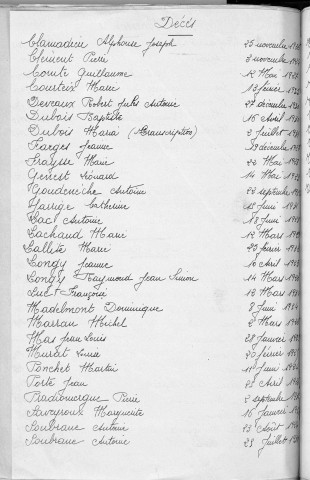 Décès
Clamadieu Alphonse Joseph 25 novembre
Clément Pierre 3 novembre
Comte Guillaume 12 Mai
Courteix Marie 13 février
Desveaux Robert Jules Antoine 27 décembre
Dubois Baptiste 16 Avril
Dubois Maria (transcription) 2 Juillet
Farges Jeanne 29 décembre
Fraysse Marie 22 Mai
Genest Léonard 14 Mai
Goudeneche Antoine 22 septembre
Jarrige Catherine Juin
Lac Antoine 18 Juin
Lachaud Henri 12 Mars
Lallite Marie 23 février
Longy Jeanne 10 Avril
Longy Raymond Jean Simon 14 Mars
Luc Françoise 12 Mars
Madelmont Dominique 8 Juin
Marran Michel 2 Mars
Mas Jean Louis 28 Janvier
Murat Louise 20 février
Ponchet Martin 11 Juin
Porte Jean 25 Avril
Pradinergue Pierre 2 septembre
Saveyroux Marguerite 16 Janvier
Soubrane Antoine 13 Août
Soubrane Antoine 29 Juillet